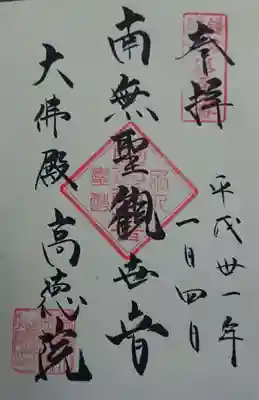 奉拝
平成廿一年
一月四日
南無聖観世音
大佛殿
高徳院